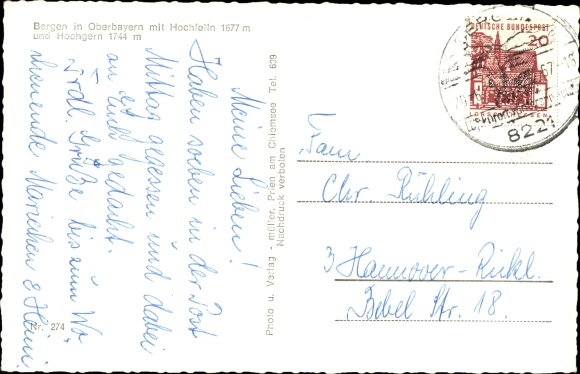 Bergen in Oberbayern mit Hochfelln 1677 m
und Hochgern 1744 m
Meine Lieben!
Haben soeben in der Post
Mittag gegessen und dabei
an Euch gedacht.
Grüße bis zum Wo-
Mariechen & Heini.
Nr. 274
Photo u. Verlag - müller, Prien am Chiemsee Tel. 639
Nachdruck verboten
DEUTSCHE BUNDESPOST
20
8221
Fam.
Chr. Rühling
3 Hannover-Rickl.
Bebel Str. 18.